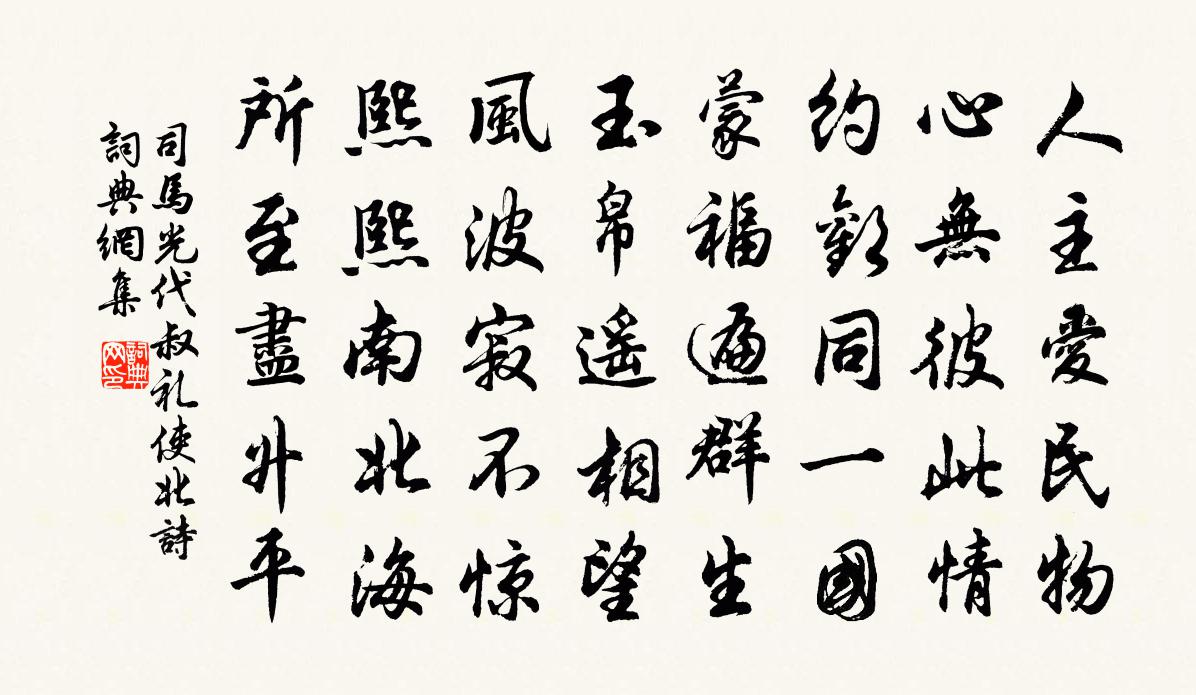 人主愛民物
心無彼此情
約歡同一國
蒙福遍群生
玉帛遥相望
風波寂不惊
熙熙南北海
所至盡升平
司馬光代叔礼使北詩
詞典網集
詞典
网印